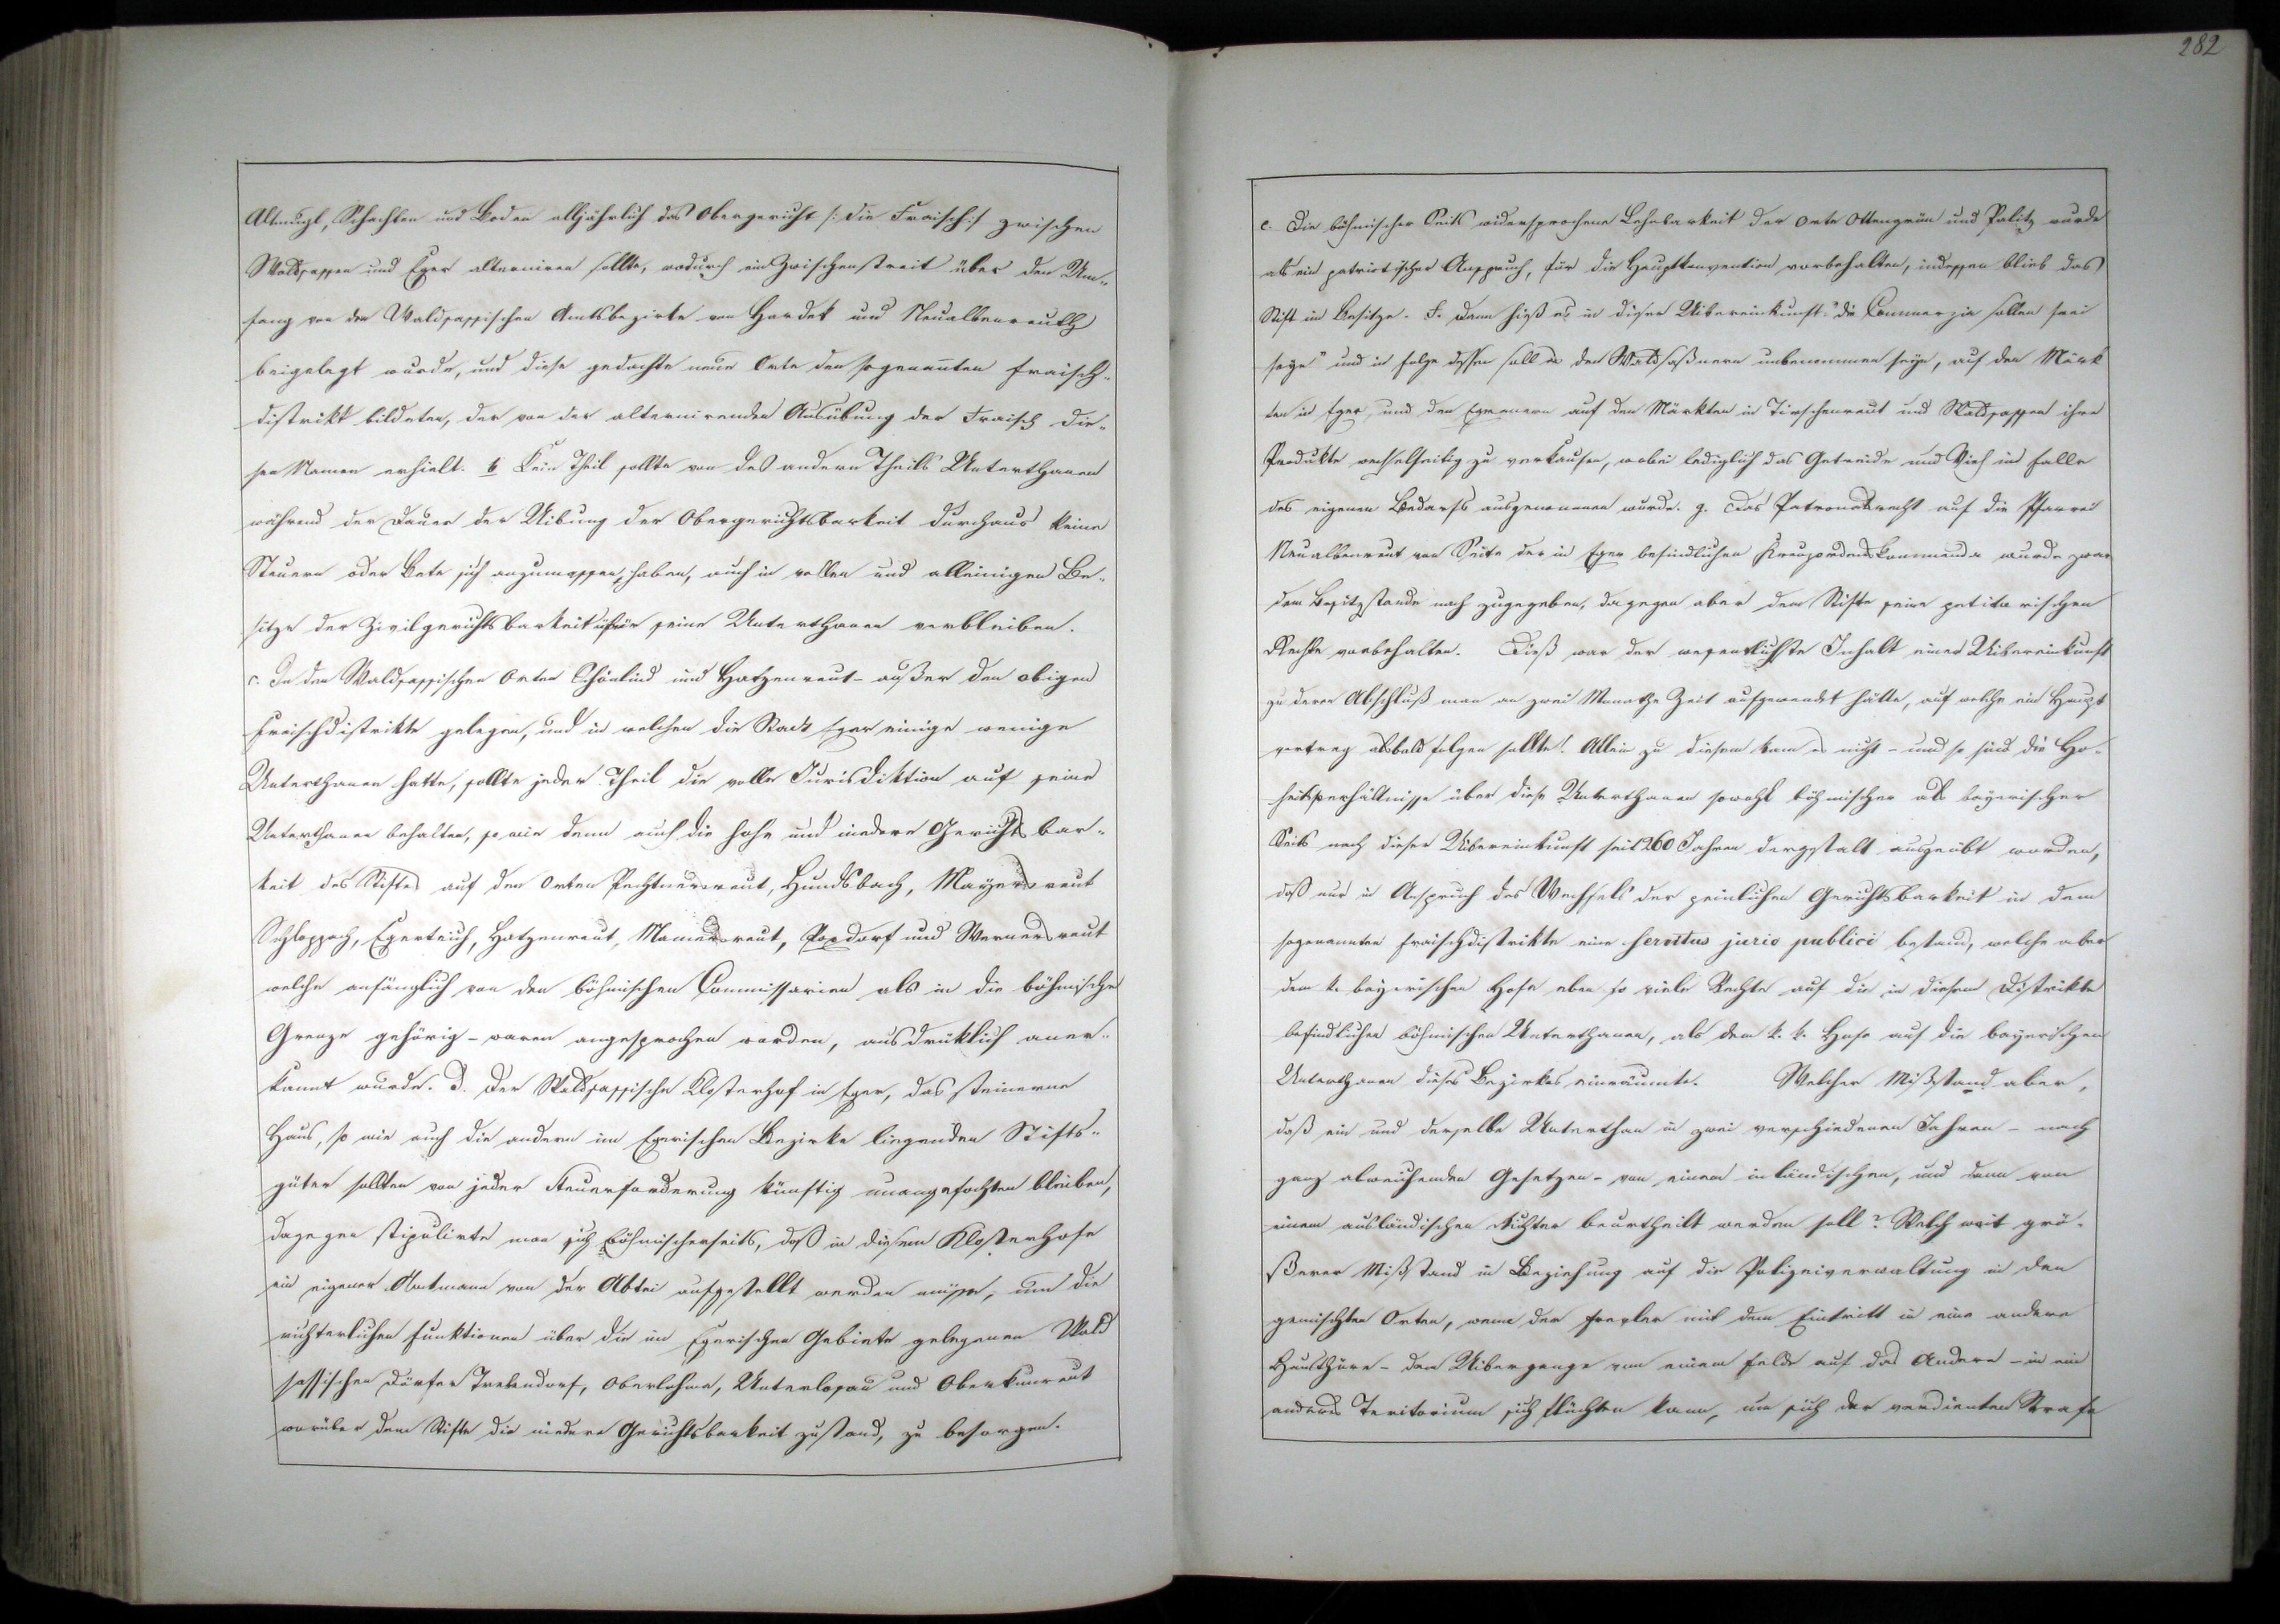 Altmugl, Schachten und Boden alljährlich das Obergericht /: die Fraisch :/ zwischen
Waldsassen und Eger alterniren sollte, wodurch ein Zwischenstreit über den Um„
fang von den Waldsassischen Amtsbezirke von Hardek und Neualbenreuth
beigelegt wurde, und diese gedachte neun Orte den sogenannten Fraisch„
distrikt bildeten, der von der alternirenden Ausübung der Fraisch die„
sen Namen erhielt. b Kein Theil sollte von des andern Theils Unterthanen
während der Dauer der Uibung der Obergerichtsbarkeit durchaus keine
Steuern oder Bete sich anzumassen haben, auch in vollen und alleinigen Be„
sitze der Zivilgerichtsbarkeit über seine Unterthanen verbleiben.
c. In den Waldsassischen Orten Schönlind und Hatzenreut – außer den obigen
Fraischdistrikte gelegen, und in welchen die Stadt Eger einige wenige
Unterthanen hatte, sollte jeder Theil die volle Jurisdiktion auf seine
Unterthanen behalten, so wie denn auch die hohe und niedere Gerichtsbar„
keit des Stiftes auf den Orten Pechtnersreut, Hundsbach, Mayersreut
Schloppach, Egerteich, Hatzenreut, Mamersreut, Poxdorf und Wernersreut
welche anfänglich von den böhmischen Commissarien als in die böhmische
Grenze gehörig – waren angesprochen worden, ausdrüklich aner„
kannt wurde. d. Der Waldsassische Klosterhof in Eger, das steinerne
Haus, so wie auch die andern im Egerischen Bezirke liegenden Stifts„
güter sollten von jeder Steuerforderung künftig unangefochten bleiben,
dagegen stipulirte man sich böhmischerseits, daß in diesem Klosterhofe
ein eigener Amtmann von der Abtei aufgestellt werden müsse, um die
richterlichen Funktionen über die im Egerischen Gebiete gelegenen Wald
sassischen Dörfer Trebendorf, Oberlohma, Unterlosau und Oberkunreut
worüber dem Stifte die niedere Gerichtsbarkeit zustand, zu besorgen.
282
e. Die böhmischer Seits widersprochene Lehnbarkeit der Orte Ottengrün und Palitz wurde
als ein patriotischer Anspruch, für die Hauptkonvention vorbehalten, indessen blieb das
Stift im Besitze. f. Dann hieß es in dieser Uibereinkunft "die Commerzia sollen frei
seye" und in Folge dessen soll es den Waldsaßnern unbenommen seyn, auf den Märk
ten in Eger, und den Egranern auf den Märkten in Tirschenreut und Waldsassen ihre
Produkte wechselseitig zu verkaufen, wobei lediglich das Getreide und Vieh im Falle
des eigenen Bedarfs ausgenommen wurde. g. Das Patronatsrecht auf die Pfarrei
Neualbenreut von Seite der in Eger befindlichen Kreuzordenskommende wurde zwar
dem Besitzstande nach zugegeben, dagegen aber dem Stifte seine petitorischen
Rechte vorbehalten. Dieß war der wesentlichste Inhalt einer Uibereinkunft
zu deren Abschluß man an zwei Monathe Zeit aufgewendet hatte, auf welche ein Haupt
vertrag alsbald folgen sollte! Allein zu diesem kam es nicht – und so sind die Ho„
heitsverhältnisse über diese Unterthanen sowohl böhmischer als bayerischer
Seits nach dieser Uibereinkunft seit 260 Jahren dergestalt ausgeübt worden,
daß nur in Anspruch des Wechsels der peinlichen Gerichtsbarkeit in dem
sogenannten Fraischdistrikte eine servitus juris publici bestand, welche aber
dem k. bayerischen Hofe eben so viele Rechte auf die in diesem Distrikte
befindlichen böhmischen Unterthanen, als dem k. k. Hofe auf die bayerischen
Unterthanen dieses Bezirkes einräumte. Welcher Mißstand aber,
daß ein und derselbe Unterthan in zwei verschiedenen Jahren – nach
ganz abweichenden Gesetzen – von einem inländischen, und dann von
einem ausländischen Richter beurtheilt werden soll? Welch weit grö„
ßerer Mißstand in Beziehung auf die Polizeiverwaltung in den
gemischten Orten, wenn der Frevler mit dem Eintritt in eine andere
Hausthüre – dem Uibergange von einem Felde auf das Andere – in ein
anderes Teritorium sich flüchten kann, um sich der verdienten Strafe